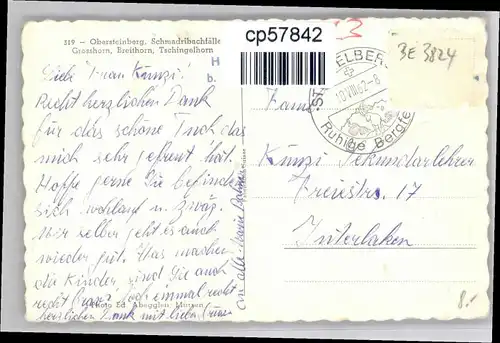 319 – Obersteinberg, Schmadribachfälle
Grosshorn, Breithorn, Tschingelhorn
H
b.
cp57842
3
BE 3824
ELBER
10.VIII.62-8
Ruhige Bergfe
Frau Künzi!
Recht herzlichen Dank
für das schöne Tuch das
mich sehr gefreut hat.
Hoffe gerne Sie befinden
sich wohlauf u. zwäg.
Mir selber geht es auch
wieder gut. Was machen
die Kinder, sind Sie auch
recht brav? Noch einmal recht
herzlichen Dank mit lieben Grüssen
an alle Marie
Photo Ed. Abegglen, Mürren
Fam
Künzi Sekundarlehrer
17
Interlaken
8.-